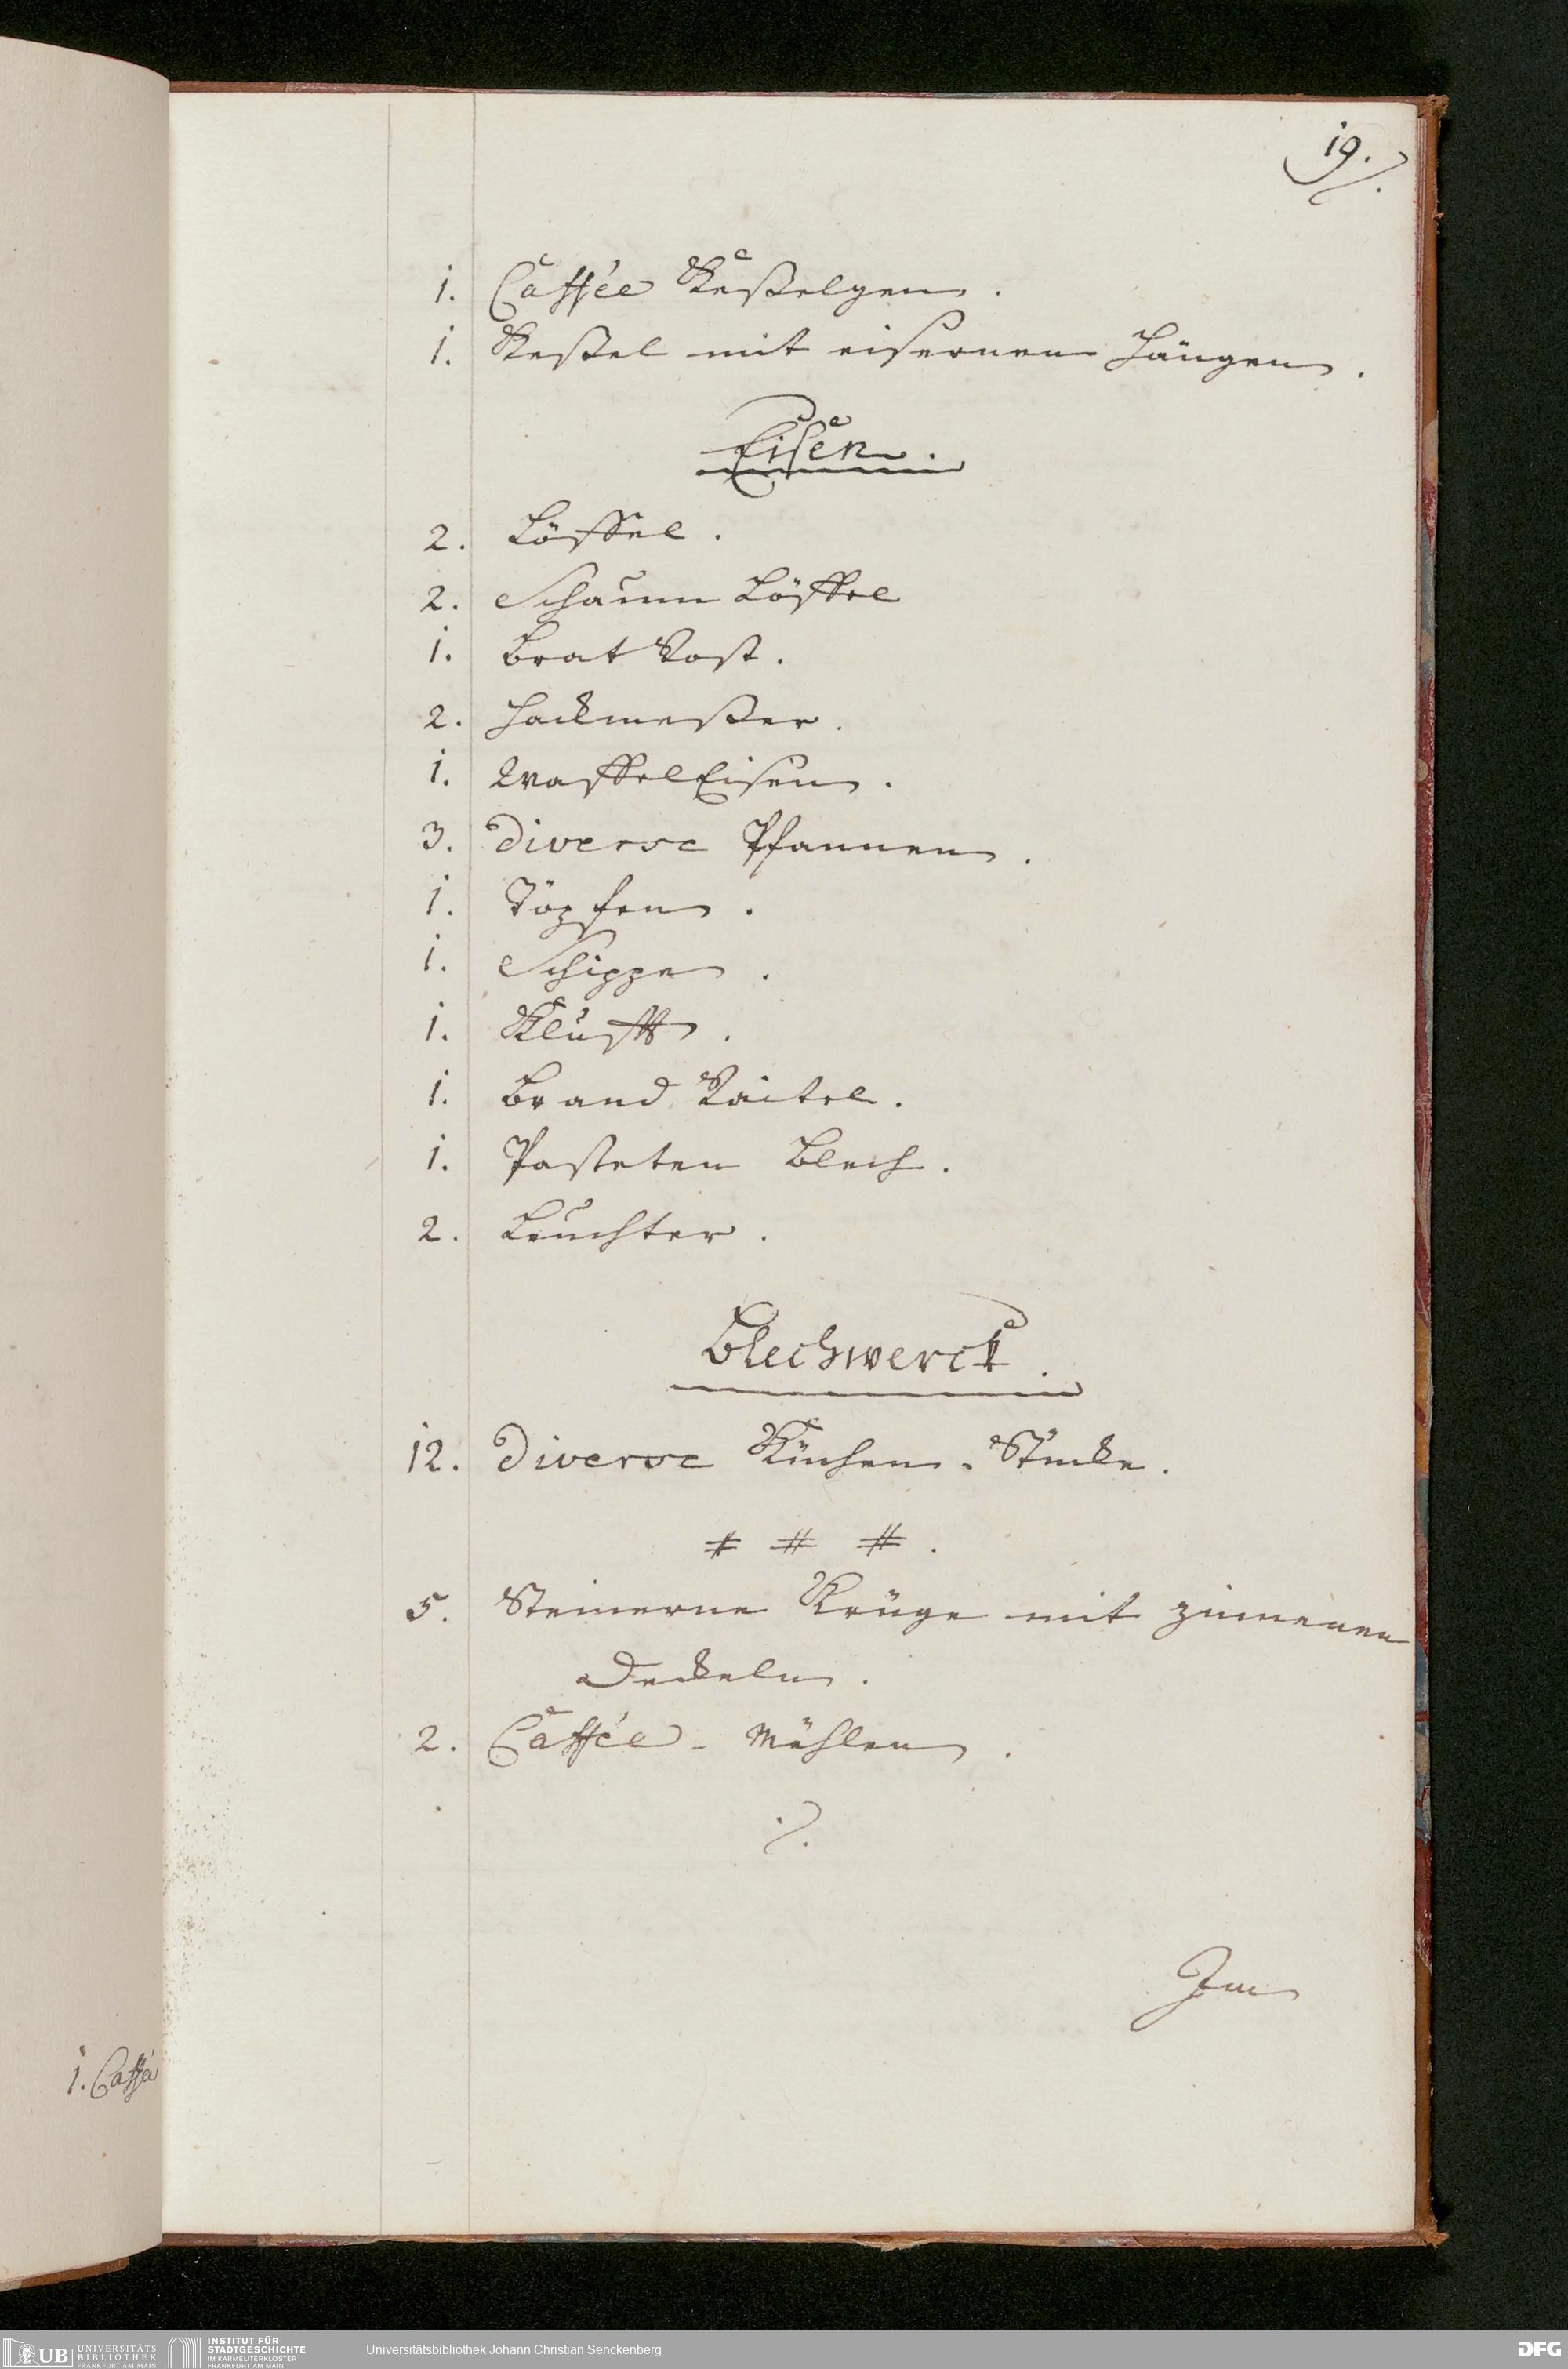 19.
1. Caffée Keßelgen.
1. Keßel mit eisernen Hängen.
Eisen.
2. Löffel.
2. Schaum Löffel
1. Brat Rost.
2. Hackmeßer.
1. Waffel Eisen.
3. Diverse Pfannen.
1. Töpfen.
1. Schippe.
1. Klufft.
1. Brand Raitel.
1. Pasteten Blech.
2. Leuchter.
Blechwerck.
12. Diverse Küchen-Stücke.
# # #.
5. Steinerne Krüge mit zinnenen
Deckeln.
2. Caffée-Mühlen.
./.
Im
1. Caffée
UB UNIVERSITÄTS BIBLIOTHEK FRANKFURT AM MAIN
INSTITUT FÜR STADTGESCHICHTE IM KARMELITERKLOSTER FRANKFURT AM MAIN
Universitätsbibliothek Johann Christian Senckenberg
DFG